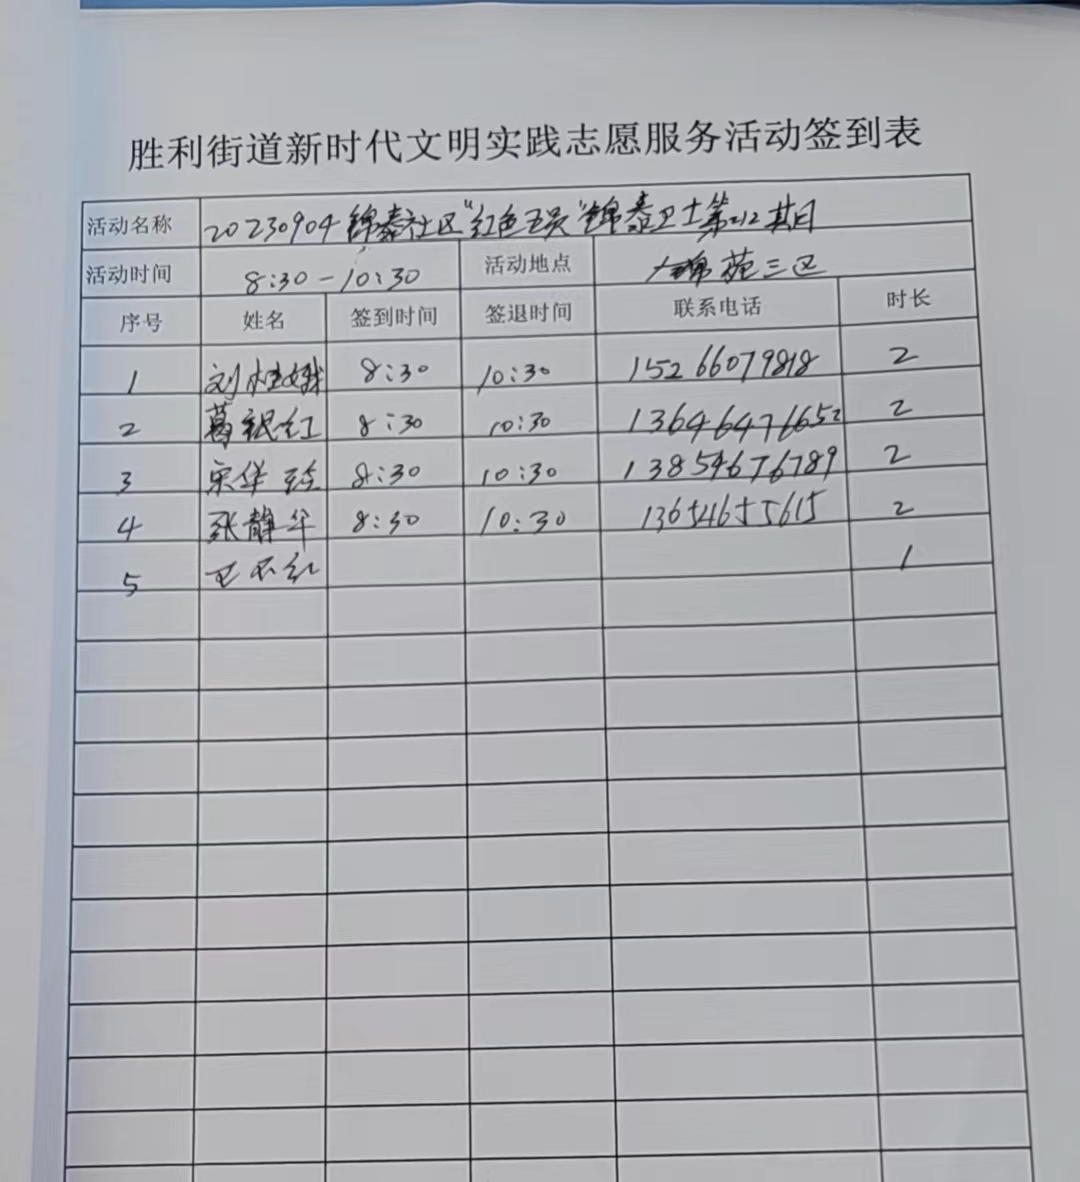 胜利街道新时代文明实践志愿服务活动签到表
活动名称 20230904锦泰社区“红色五员”锦泰卫士第212期
活动时间 8:30-10:30 活动地点 锦苑三区
序号 姓名 签到时间 签退时间 联系电话 时长
1 刘桂娥 8:30 10:30 15266079818 2
2 葛银红 8:30 10:30 13646476652 2
3 宋华玲 8:30 10:30 13854676789 2
4 张静华 8:30 10:30 13654655615 2
5 红 1